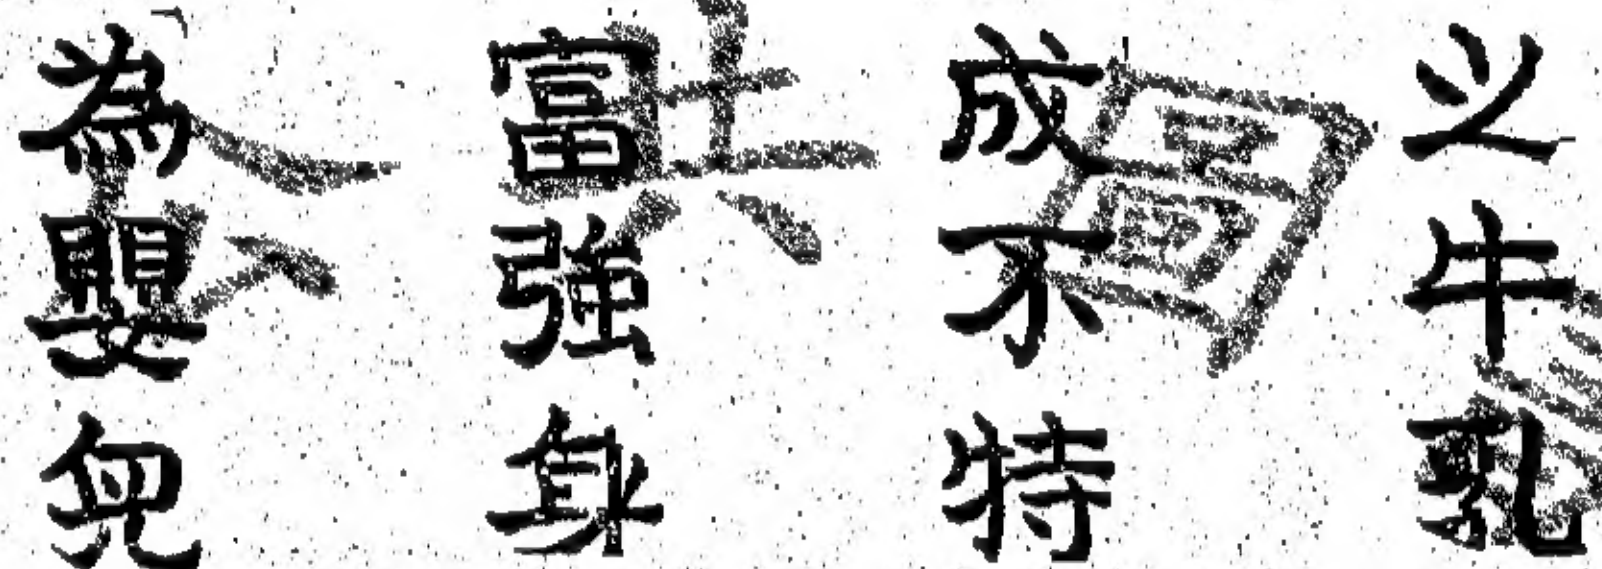 之牛乳
成不特
富強身
為嬰兒